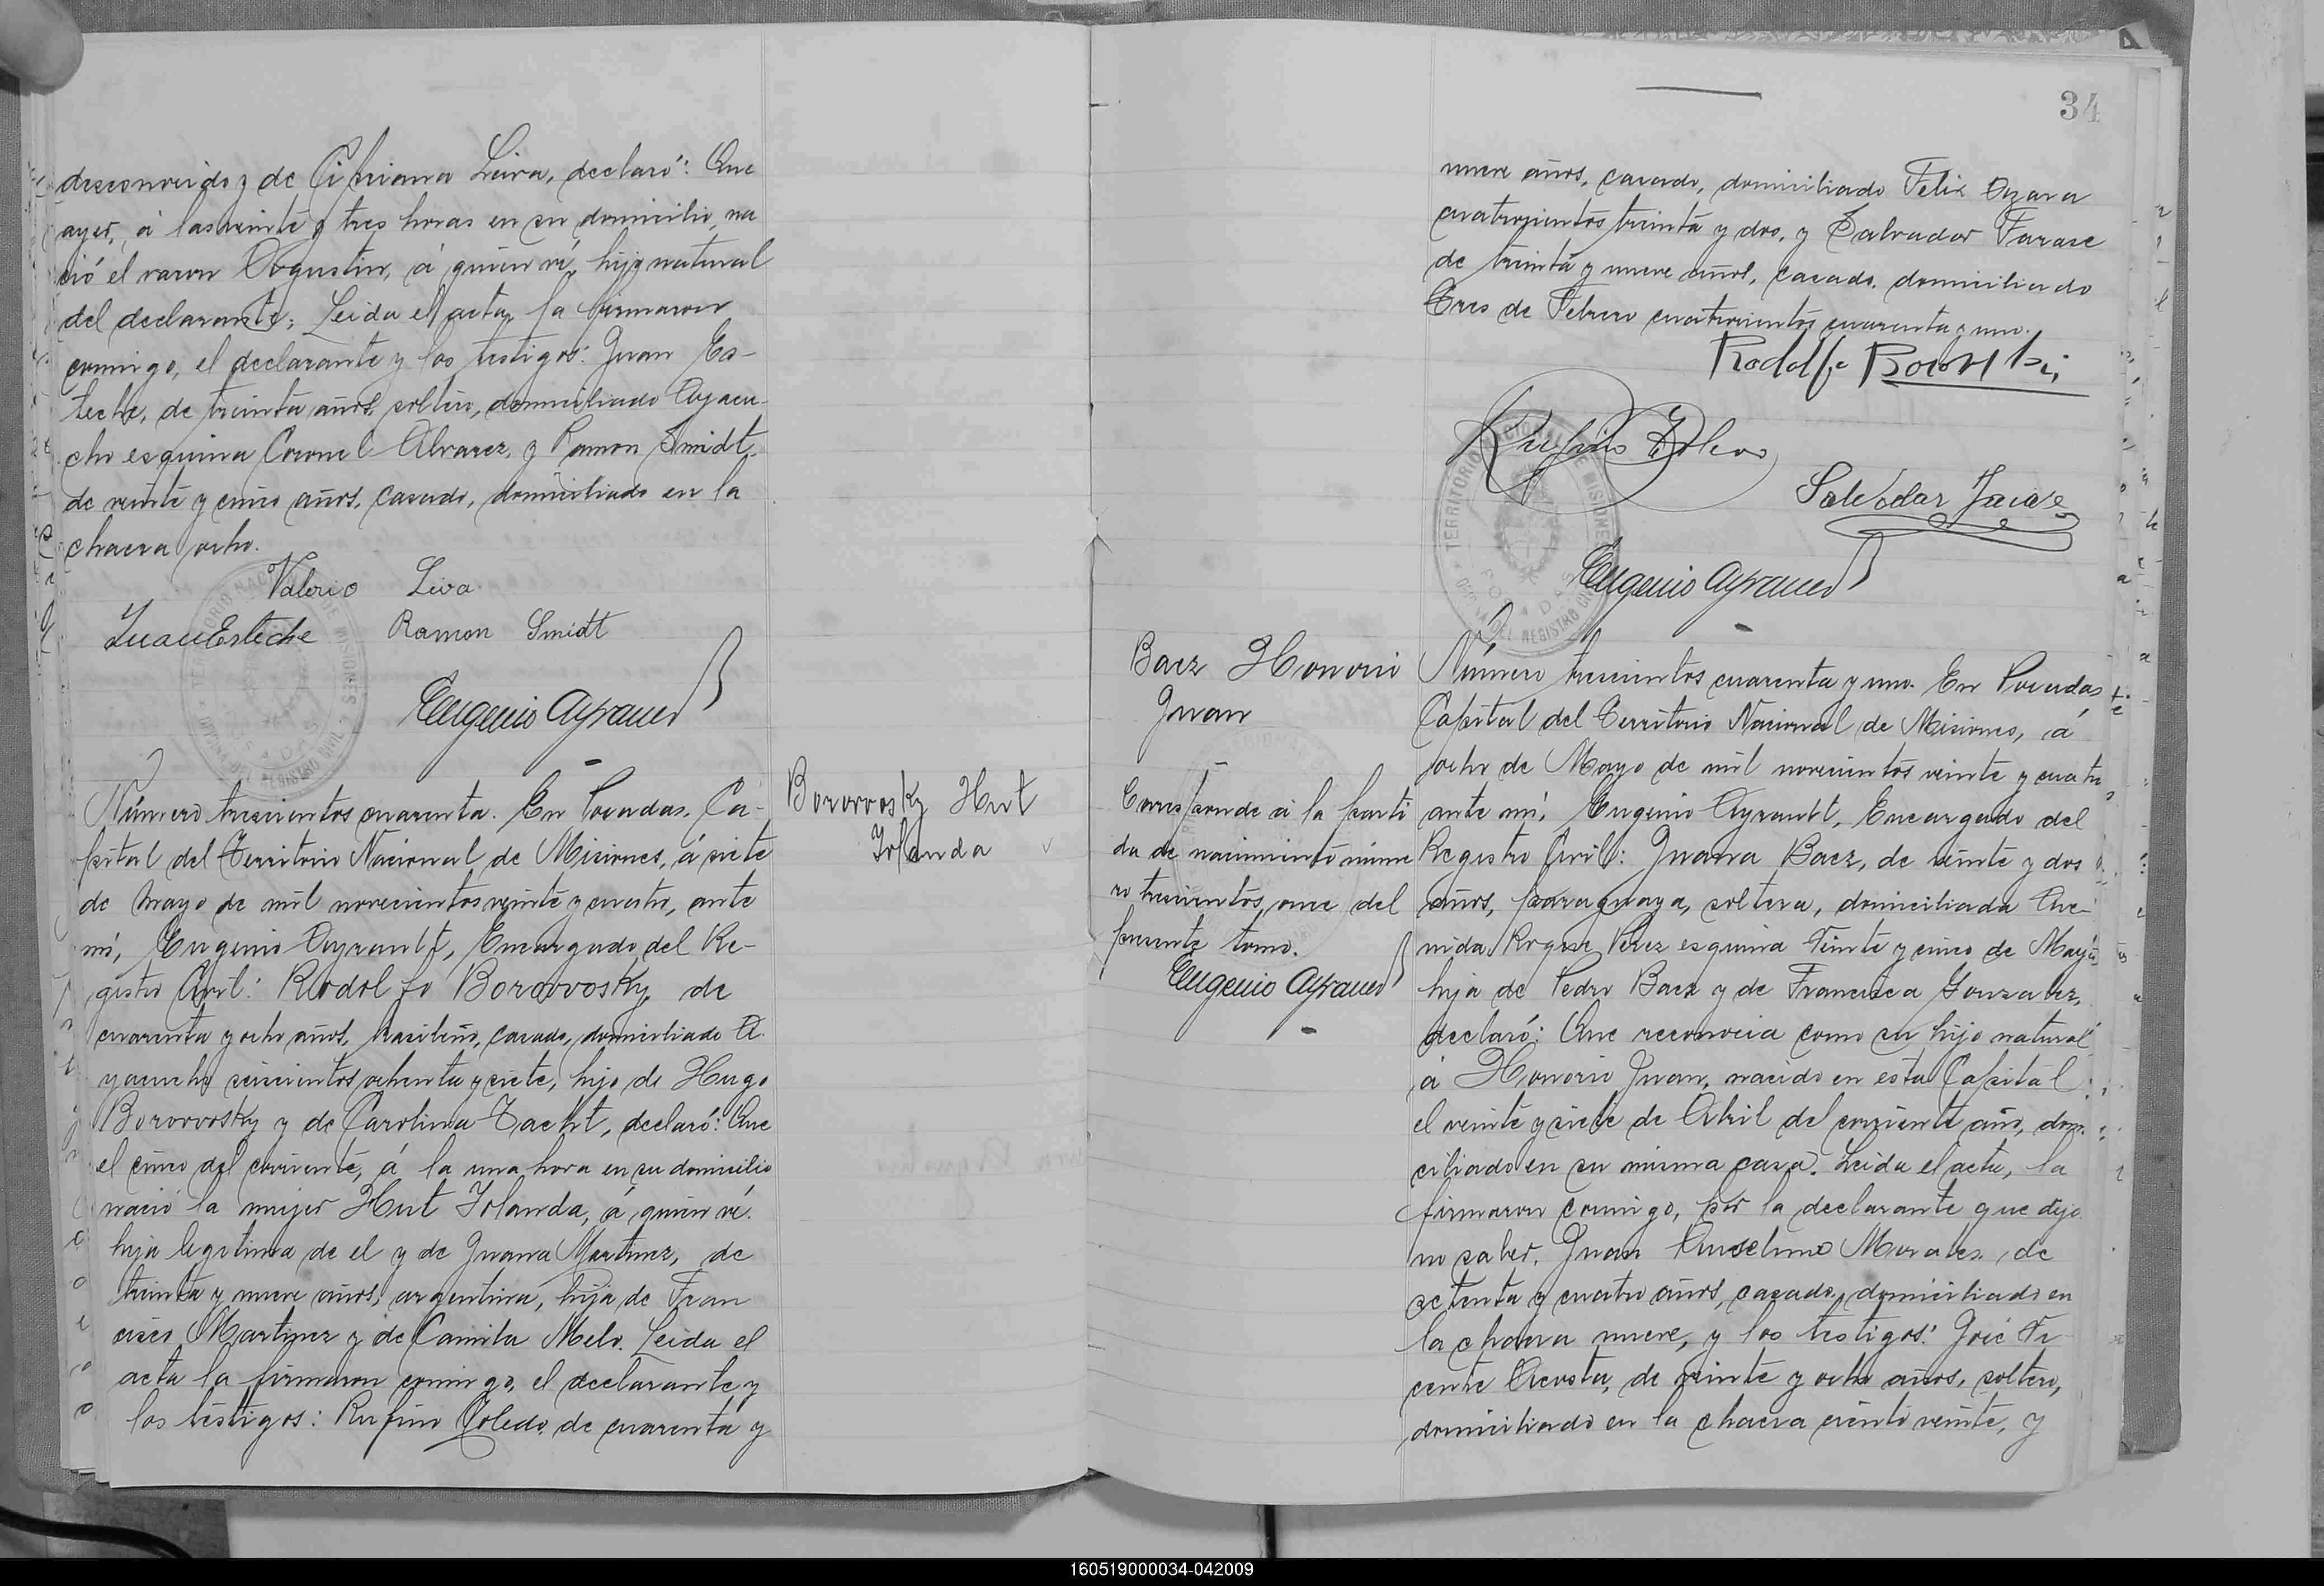 desconocido y de Cipriana Leiva, declaró: Que
ayer, á las veinte y tres horas en su domicilio, na
ció el varon Augustin, á quien ví, hijo natural
del declarante: Leida el acta, la firmaron
conmigo, el declarante y los testigos: Juan Es-
teche, de treinta años, soltero, domiciliado Ayacu-
cho esquina Coronel Alvarez, y Ramon Smidt,
de veinte y cinco años, casado, domiciliado en la
chacra ocho.
Valerio Leiva
Juan Esteche Ramon Smidt
Eugenio Ayrault
Borowosky Hut
Yolanda
Número trescientos cuarenta. En Posadas, Ca-
pital del Territorio Nacional de Misiones, á siete
de Mayo de mil novecientos veinte y cuatro, ante
mí, Eugenio Ayrault, Encargado del Re-
gistro Civil: Rodolfo Borowosky, de
cuarenta y ocho años, brasileño, casado, domiciliado A-
yacucho seiscientos ochenta y siete, hijo de Hugo
Borowosky y de Carolina Tacht, declaró: Que
el cinco del corriente, á la una hora en su domicilio
nació la mujer Hut Yolanda, á quien ví.
hija legitima de el y de Juana Martinez, de
treinta y nueve años, argentina, hija de Fran
cisco Martinez y de Camila Melo. Leida el
acta la firmaron conmigo, el declarante y
los testigos: Rufino Toledo, de cuarenta y
34
nueve años, casado, domiciliado Felix Azara
cuatrocientos treinta y dos, y Salvador Farace
de treinta y nueve años, casado, domiciliado
Tres de Febrero cuatrocientos cuarenta y uno.
Rodolfo
Rufino Toledo
Salvador Farace
TERRITORIO NACIONAL DE MISIONES
POSADAS
OFICINA DEL REGISTRO CIVIL
Eugenio Ayrault
Baez Honorio
Juan
Corresponde á la parti
da de nacimiento núme
ro trescientos once del
presente tomo.
Eugenio Ayrault
Número trescientos cuarenta y uno. En Posadas,
Capital del Territorio Nacional de Misiones, á
ocho de Mayo de mil novecientos veinte y cuatro,
ante mí, Eugenio Ayrault, Encargado del
Registro Civil: Juana Baez, de veinte y dos
años, paraguaya, soltera, domiciliada Ave-
nida Roque Perez esquina Veinte y cinco de Mayo,
hija de Pedro Baez y de Francisca Gonzalez,
declaró: Que reconocia como su hijo natural
á Honorio Juan, nacido en esta Capital
el veinte y siete de Abril del corriente año, domi-
ciliado en su misma casa. Leida el acta, la
firmaron conmigo, por la declarante que dijo
no saber, Juan Anselmo Morales, de
setenta y cuatro años, casado, domiciliado en
la chacra nueve, y los testigos: José Vi-
cente Acosta, de veinte y ocho años, soltero,
domiciliado en la chacra ciento veinte, y
160519000034-042009